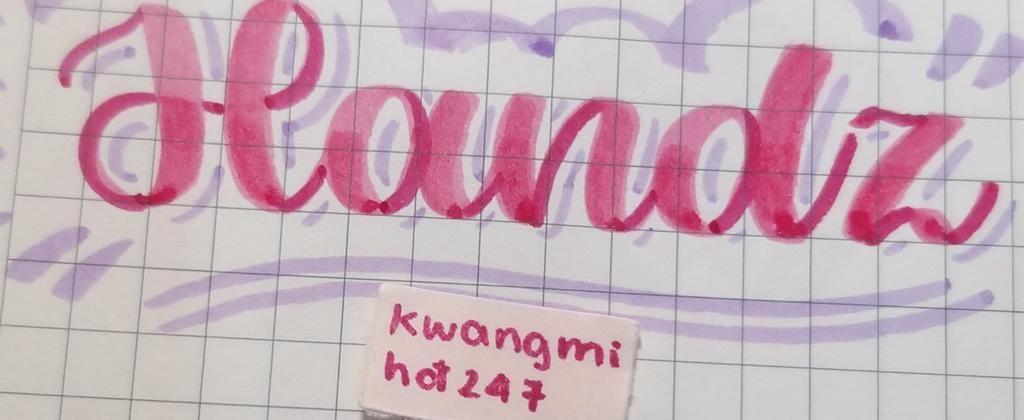 Handz
kwangmi
hot247